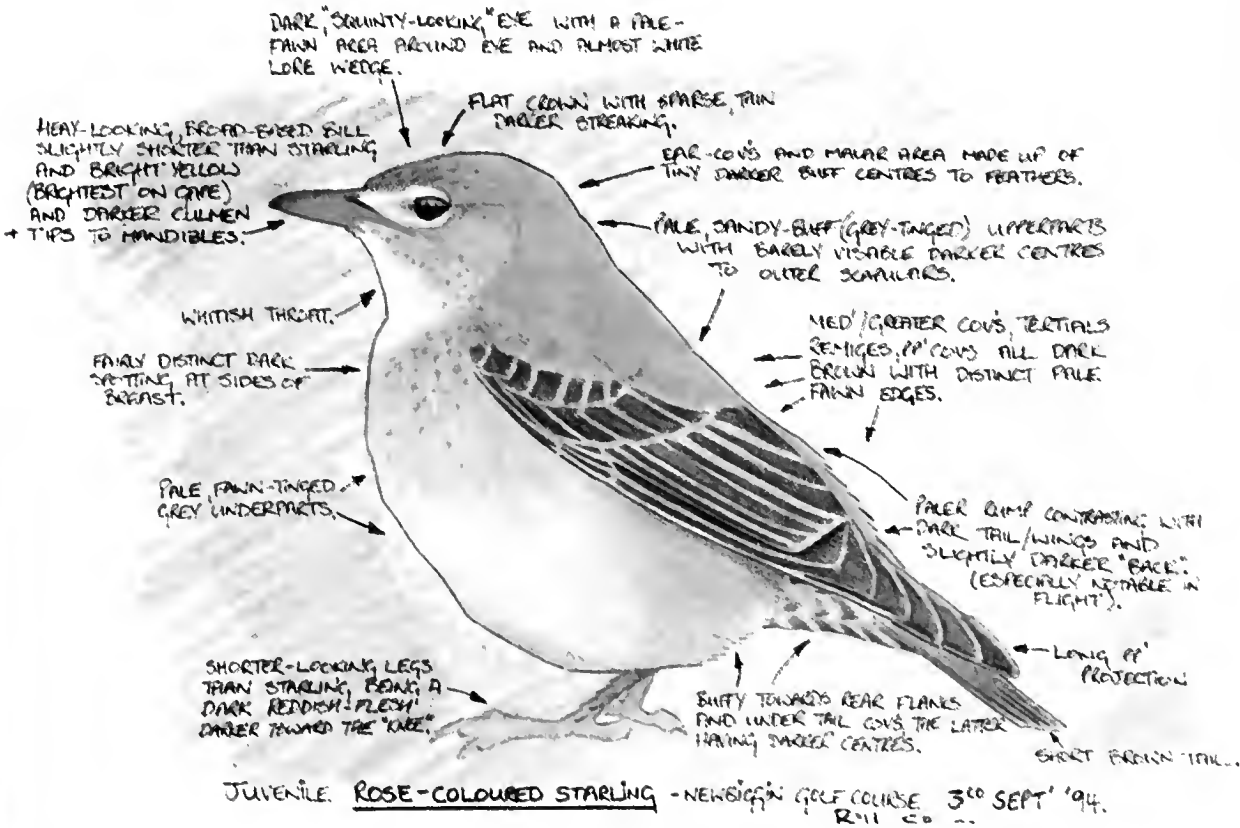 DARK, "SQUINTY-LOOKING," EYE WITH A PALE-
FAWN AREA AROUND EYE AND ALMOST WHITE
LORE WEDGE.
FLAT CROWN WITH SPARSE, THIN
DARKER STREAKING.
HEAY-LOOKING, BROAD-BASED BILL
SLIGHTLY SHORTER THAN STARLING
AND BRIGHT YELLOW
(BRIGHTEST ON GAPE)
AND DARKER CULMEN
+ TIPS TO MANDIBLES.
EAR-COV'S AND MALAR AREA MADE UP OF
TINY DARKER BUFF CENTRES TO FEATHERS.
PALE, SANDY-BUFF (GREY-TINGED) UPPERPARTS
WITH BARELY VISABLE DARKER CENTRES
TO OUTER SCAPULARS.
WHITISH THROAT.
MED'/GREATER COV'S, TERTIALS
REMIGES, PP' COV'S ALL DARK
BROWN WITH DISTINCT PALE
FAWN EDGES.
FAIRLY DISTINCT DARK
SPOTTING AT SIDES OF
BREAST.
PALE, FAWN-TINGED
GREY UNDERPARTS.
PALER RUMP CONTRASTING WITH
DARK TAIL/WINGS AND
SLIGHTLY DARKER "BACK".
(ESPECIALLY NOTABLE IN
FLIGHT).
SHORTER-LOOKING LEGS
THAN STARLING, BEING A
DARK REDDISH-FLESH
DARKER TOWARD THE "KNEE".
BUFFY TOWARDS REAR FLANKS
AND UNDER TAIL COV'S THE LATTER
HAVING DARKER CENTRES.
LONG PP'
PROJECTION
SHORT BROWN TAIL.
JUVENILE ROSE-COLOURED STARLING - NEWBIGGIN GOLF COURSE 3RD SEPT' '94.